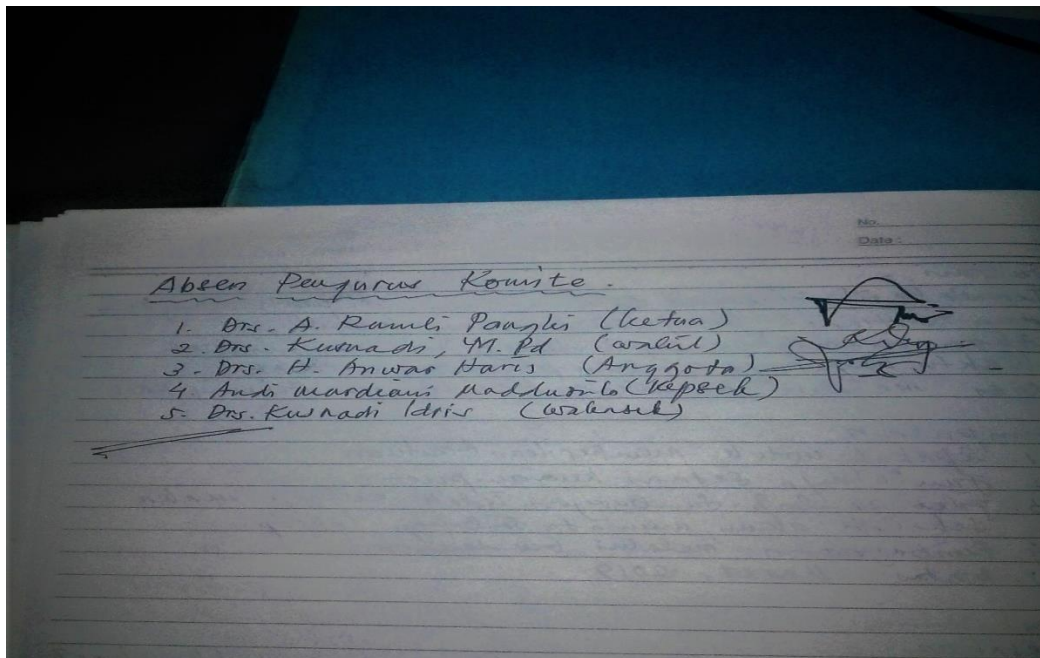 No.
Date :
Absen Pengurus Komite.
1. Drs. A. Ramli (Ketua)
2. Drs. Kusnadi, M.Pd (wakil)
3. Drs. H. Anwar Haris (Anggota)
4 Andi Mardiani (Kepsek)
5. Drs. Kusnadi Idris